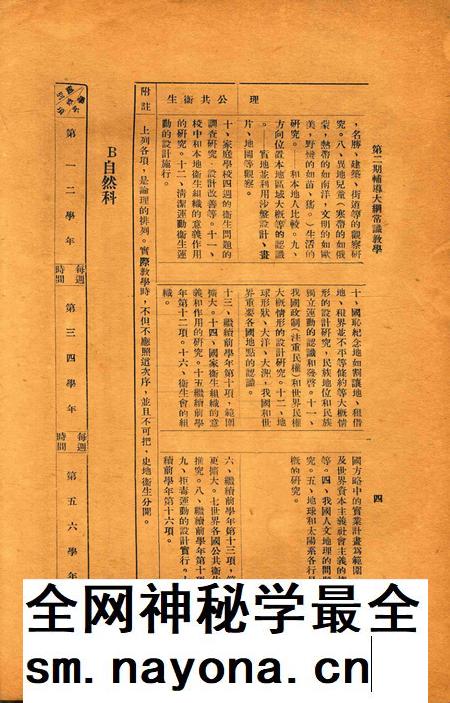 第二期輔導大綱常識教學
四
理
，名勝，建築，街道等的觀察研
究。八、異地兒童（寒帶的如俄
蒙，熱帶的如南洋，文明的如歐
美，野蠻的如苗、猺。）生活的
研究。——和本地人比較。九、
方向位置本地區域大概等的認識
——實地並利用沙盤設計、畫
片、地圖等觀察。
十、國恥紀念地如割讓地、租借
地、租界並不平等條約等大概情
形的設計研究，民族地位和民族
獨立運動的認識和發啓。十一、
我國政制（注重民權）和世界民權
大概情形的設計研究。十二、地
球形狀、大洋、大洲，我國和世
界重要各國地點的認識。
國方略中的實業計畫爲範圍
及世界資本主義社會主義的
等。四、我國人文地理的問題
究。五、地球和太陽系各行星
概的研究。
公共衛生
十、家庭學校四週的衛生問題的
調查研究，設計改善等。十一、
校中和本地衛生組織的意義作用
的研究。十二、清潔運動衛生運
動的設計施行。
十三、繼續前學年第十項，範圍
擴大。十四、國家衛生組織的意
義和作用的研究。十五繼續前學
年第十二項。十六、衛生會的組
織。
六、繼續前學年第十三項，
更擴大。七世界各國公共衛生
推究。八、繼續前學年第十項
九、拒毒運動的設計實行。十
續前學年第十六項。
附註
上列各項，是論理的排列。實際教學時，不但不應照這次序，並且不可把，史地衛生分開。
B自然科
第一二學年
每週時間
第三四學年
每週時間
第五六學年
全网神秘学最全
sm.nayona.cn